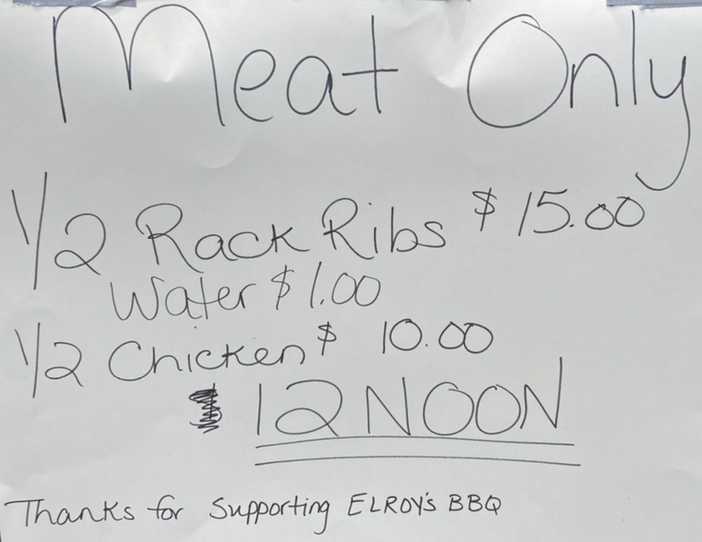 Meat Only
1/2 Rack Ribs $ 15.00
Water $ 1.00
1/2 Chicken $ 10.00
12 NOON
Thanks for Supporting ELROY's BBQ